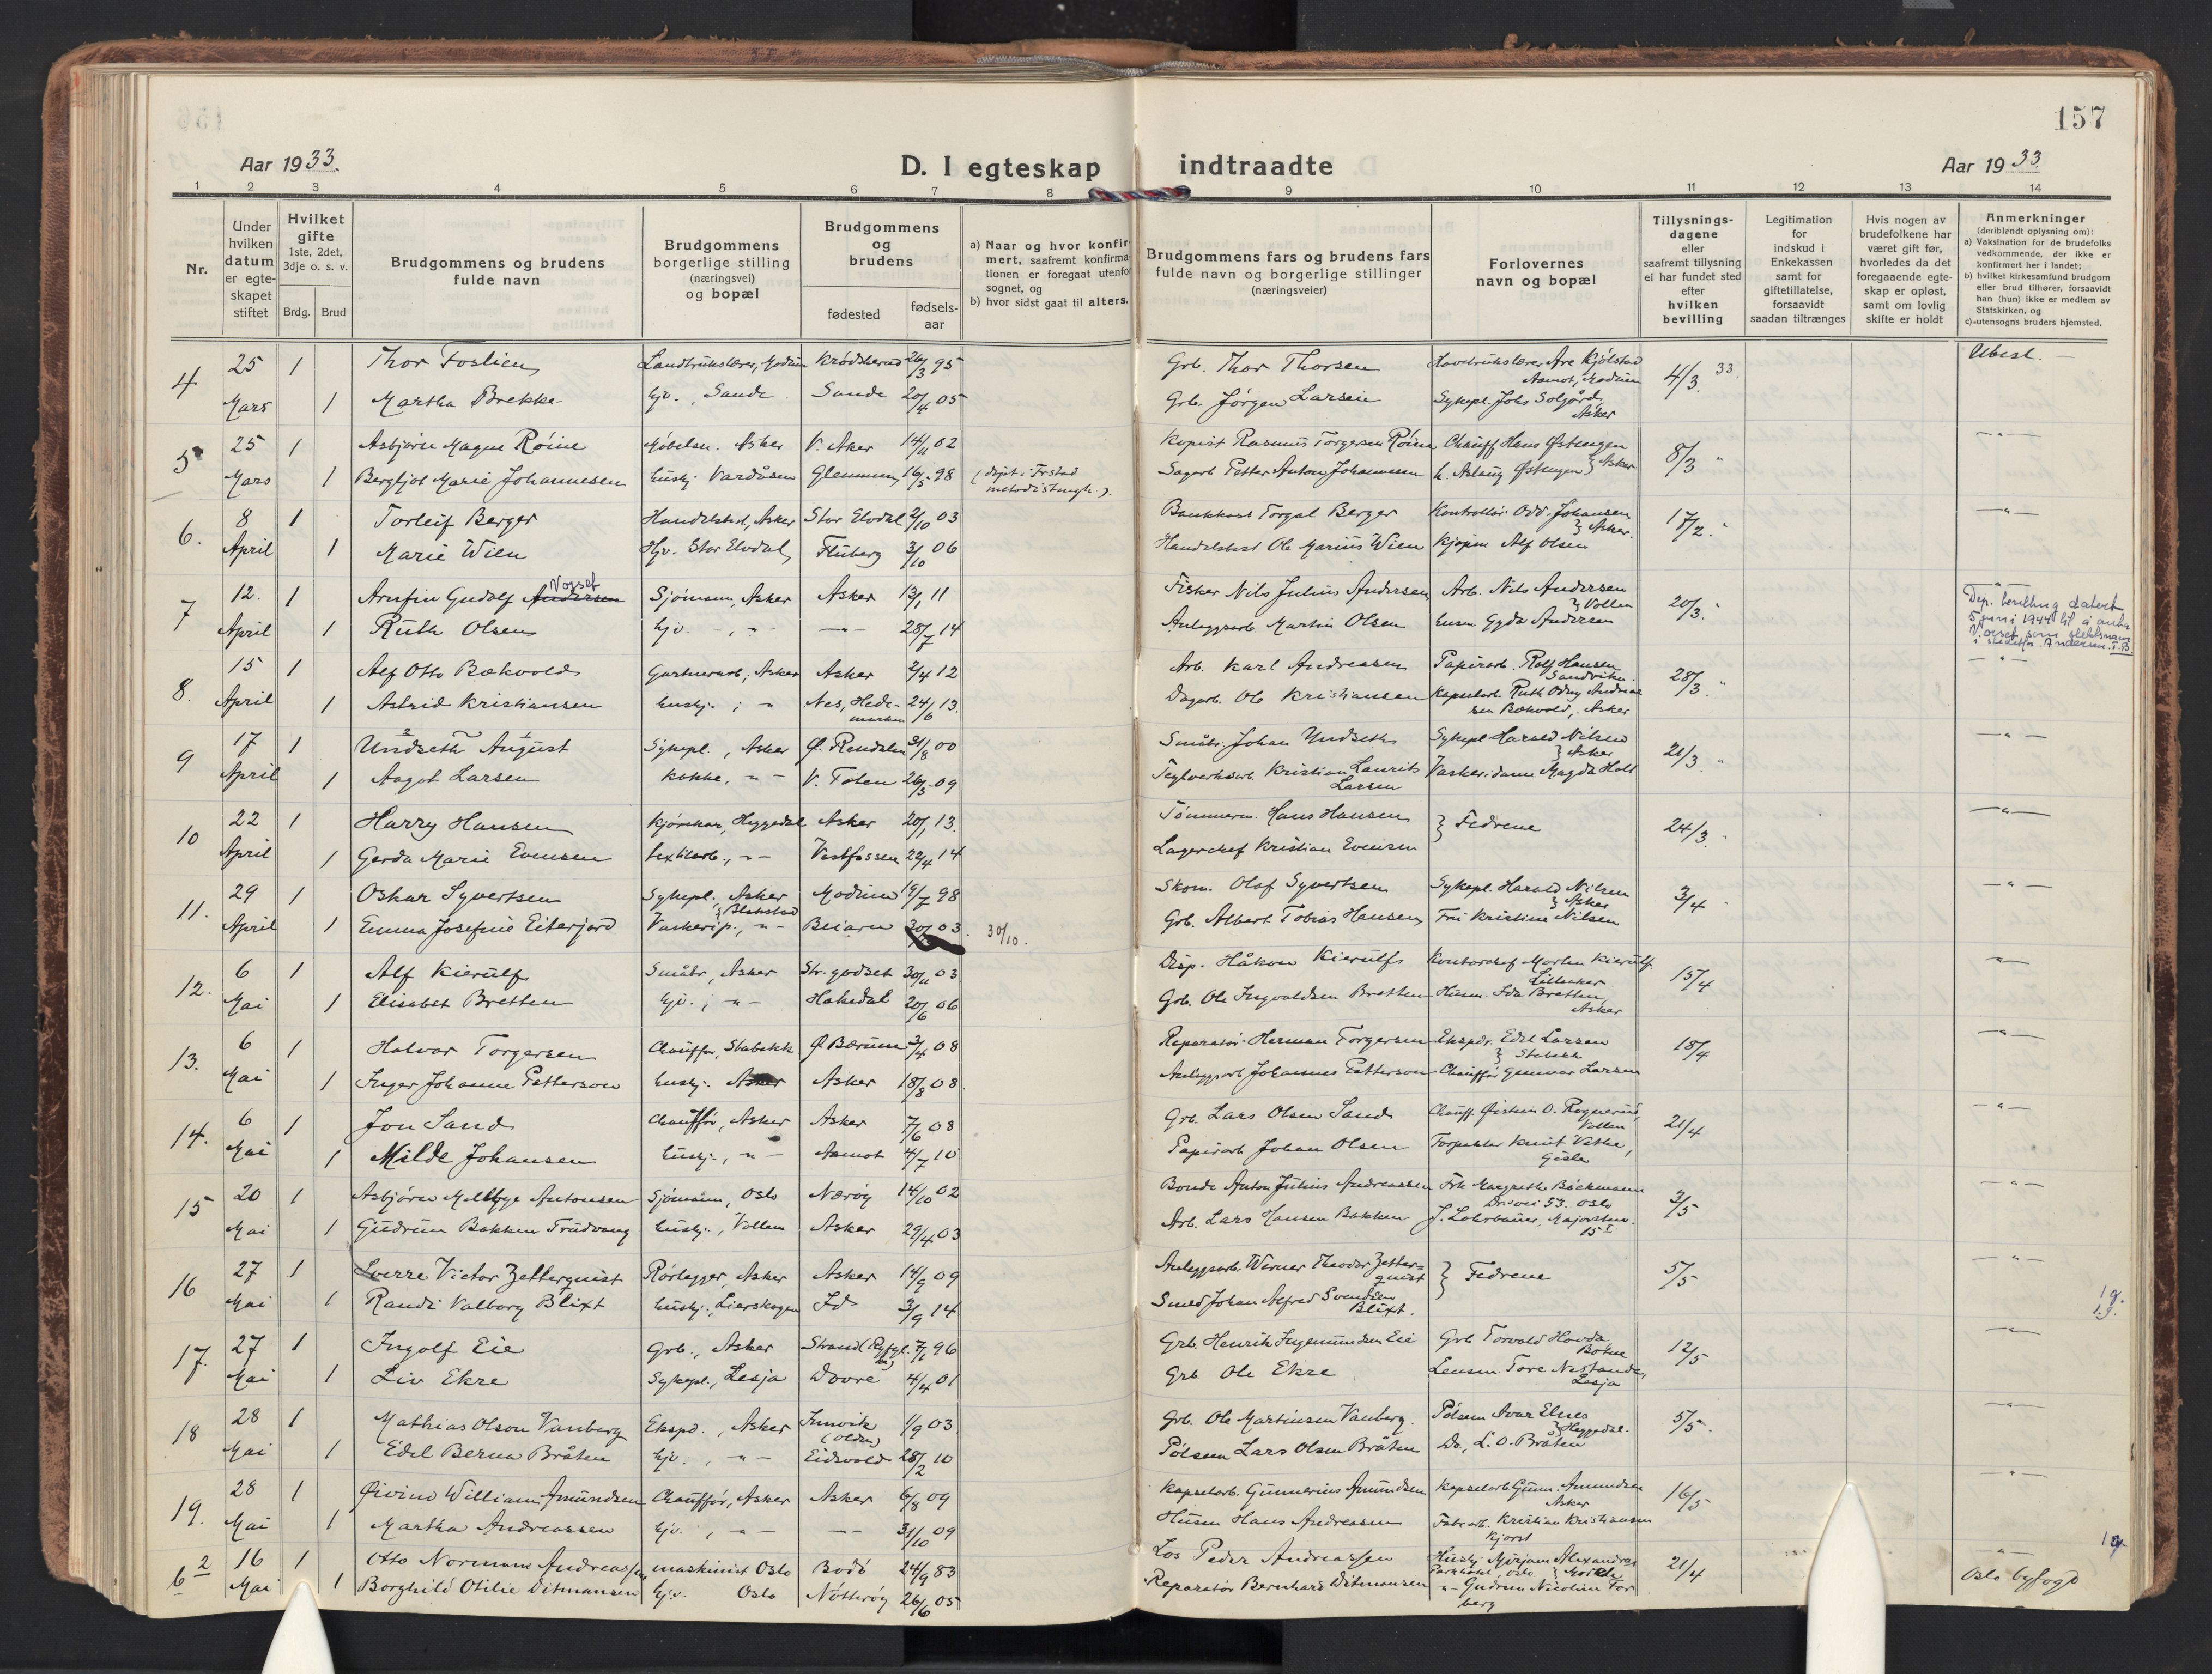 157
Aar 1933.
D. I egteskap indtraadte
Aar 1933
1 2 3 4 5 6 7 8 9 10 11 12 13 14
Nr.
Under hvilken datum er egteskapet stiftet
Hvilket gifte 1ste, 2det, 3dje o. s. v.
Brdg. Brud
Brudgommens og brudens fulde navn
Brudgommens borgerlige stilling (næringsvei) og bopæl
Brudgommens og brudens
fødested
fødsels-aar
a) Naar og hvor konfirmert, saafremt konfirmationen er foregaat utenfor sognet, og
b) hvor sidst gaat til alters.
Brudgommens fars og brudens fars fulde navn og borgerlige stillinger (næringsveier)
Forlovernes navn og bopæl
Tillysningsdagene eller saafremt tillysning ei har fundet sted efter hvilken bevilling
Legitimation for indskud i Enkekassen samt for giftetillatelse, forsaavidt saadan tiltrænges
Hvis nogen av brudefolkene har været gift før, hvorledes da det foregaaende egteskap er opløst, samt om lovlig skifte er holdt
Anmerkninger
(deriblandt oplysning om):
a) Vaksination for de brudefolks vedkommende, der ikke er konfirmert her i landet;
b) hvilket kirkesamfund brudgom eller brud tilhører, forsaavidt han (hun) ikke er medlem av Statskirken, og
c) utensogns bruders hjemsted.
4 25 1 Thor Foslien Landbrukslærer, Modum Krødsherad 26/3 95 Grb. Thor Thorsen Are Kjølstad Aamot, Modum 4/3 33. Ubesl.
Mars 1 Martha Brekke hjv., Sande Sande 20/4 05 Grb. Jørgen Larsen Sykepl. Johs Solfjord, Asker
5 25 1 Asbjørn Magne Röine Møbelsn. Asker V. Aker 14/11 02 Kopist Rasmus Torgersen Röine Chauff Hans Østengen 8/3 " — " —
Mars 1 Bergljot Marie Johannesen husbj. Vardåsen Glemmen 16/5 98 (døpt i Frstad metodistmgh.). Sagarb Petter Anton Johannesen h. Aslaug Østengen } Asker
6. 8 1 Torleif Berger Handelsbest, Asker Stor Elvdal 2/10 03 Bankkass Torgal Berger Kontrollør Odd Johansen } Asker. 17/2 " — " —
April 1 Marie Wien Hjv. Stor Elvdal, Fluberg 3/10 06 Handelsbest Ole Marius Wien Kjøpm Alf Olsen
7 12. 1 Arnfin Gudolf Andersen Vorset Sjømann, Asker Asker 13/1 11 Fisker Nils Julius Andersen Arb. Nils Andersen } Vollen 20/3 "
April 1 Ruth Olsen hjv. —, " — " — 28/7 14 Anleggsarb Martin Olsen husm Gyda Andersen
Dep. bevilling datert
5 juni 1944 til å anta
Vorset som slektsnavn
i stedetfor Andersen. T.B.
8. 15 1 Alf Otto Bækvold Gartnerarb, Asker Asker 2/4 12 Arb. Karl Andreasen Papirarb. Rolf Hansen Sandvika 28/3 " — " —
April 1 Astrid Kristiansen husbj. ; " Nes, Hedemarken 24/6 13. Dagarb. Ole Kristiansen Kapselarb. Ruth Odny Andreasen Bækvold, Asker
9 17 1 Undseth August Sykepl., Asker Ø. Rendalen 31/8 00 Småbr. Johan Undseth Sykepl Harald Nilsen } Asker 21/3 " — " —
April 1 Aagot Larsen kokke, " — V. Toten 26/5 09 Teglverksarb Kristian Laurits Larsen Vaskeridame Magda Holt
10 22 1 Harry Hansen Kjørekar, Heggedal Asker 20/1 13. Tømmerm. Hans Hansen } Fedrene 24/3 " — " —
April 1 Gerda Marie Evensen textilarb., " — Vestfossen 22/4 14 Lagerchef Kristian Evensen
11. 29 1 Oskar Syvertsen Sykepl., Asker } Blakstad Modum 19/7 98 Skom. Olaf Syvertsen Sykepl. Harald Nilsen } Asker 3/4 — " —
April 1 Emma Josefine Eiterjord Vaskerip., " — Beiarn 03. 30/10. Grb. Albert Tobias Hansen Fru Kristine Nilsen
12. 6 1 Alf Kierulf Småbr, Asker Str. godset 30/11 03 Disp. Håkon Kierulf Kontorchef Morten Kierulf Lilleaker 15/4 — " —
Mai 1 Elisabet Bretten hjv., " — Hakedal 20/6 06 Grb. Ole Ingvaldsen Bretten Husm. Ida Bretten Asker
13. 6 1 Halvor Torgersen Chauffør, Stabekk Ø. Bærum 3/4 08 Reparatør Herman Torgersen Ekspdr. Edel Larsen } Stabekk 18/4 — " —
Mai 1 Inger Johanne Petterson husbj. Asker Asker 18/8 08. Anleggsarb Johannes Petterson Chauffør Gunnar Larsen
14. 6 1 Jon Sand Chauffør, Asker Asker 7/6 08 Grb. Lars Olsen Sand Chauff Øistein O. Rognerud, Vollen 21/4 — " —
Mai 1 Milde Johansen husbj., " — Aamot 4/7 10 Papirarb Johan Olsen Forpakter Knut Vethe, Gisle
15 20 1 Asbjørn Mellbye Antonsen Sjømann, Oslo Nærøy 14/10 02 Bonde Anton Julius Andreassen Frk Margrethe Bäckmann 53. Oslo 3/5 — " —
Mai 1 Gudrun Bakken Trudvang husbj., Vollen Asker 29/4 03 Arb. Lars Hansen Bakken J. Lohrbauer, Majorstuv. 15 I
16 27 1 Sverre Victor Zetterquist Rørlegger, Asker Asker 14/9 09 Anleggsarb. Werner Theodor Zetterquist } Fedrene 5/5 — " —
Mai 1 Randi Valborg Blixt husbj., Lierskogen Id 3/9 14. Smed Johan Alfred Svendsen Blixt.
1 g.
1 g.
17. 27 1 Ingolf Eie Grb., Asker Strand (Ryfylke) 7/1 96 Grb. Henrik Ingemundsen Eie Grb Torvald Hovda, Bokn 12/5 — " —
Mai 1 Liv Ekre Sykepl., Lesja Dovre 4/4 01 Grb Ole Ekre Lensm. Tore Nestande, Lesja
18 28 1 Mathias Olson Vanberg Ekspd., Asker Innvik (Olden) 1/9 03. Grb. Ole Martinsen Vanberg. Pølsem Avar Elnes } Heggedal. 5/5. — " —
Mai 1 Edel Berna Bråten hjv., " — Eidsvold 28/2 10 Pølsem Lars Olsen Bråten Do., L. O. Bråten
19. 28 1 Øivind William Amundsen Chauffør, Asker Asker 6/8 09 Kapselarb. Gunnerius Amundsen Kapselarb Gunn. Amundsen Asker 16/5 — " —
Mai 1 Martha Andreassen hjv., " — — " — 31/10 09 Husm Hans Andreasen Fabr. arb. Kristian Kristiansen
6 2 16 1 Otto Normann Andreassen maskinist Oslo Bodö 24/9 83 Los Peder Andreassen Husbj Mirjam Alexandra Parkhotel, Oslo } 21/4 — " —
Mai 1 Borghild Otilie Ditmansen hjv. Oslo Nötterøy 26/6 05 Reparatør Bernhard Ditmansen " — Gudrun Nicoline Forberg Oslo byfogd
1 g.